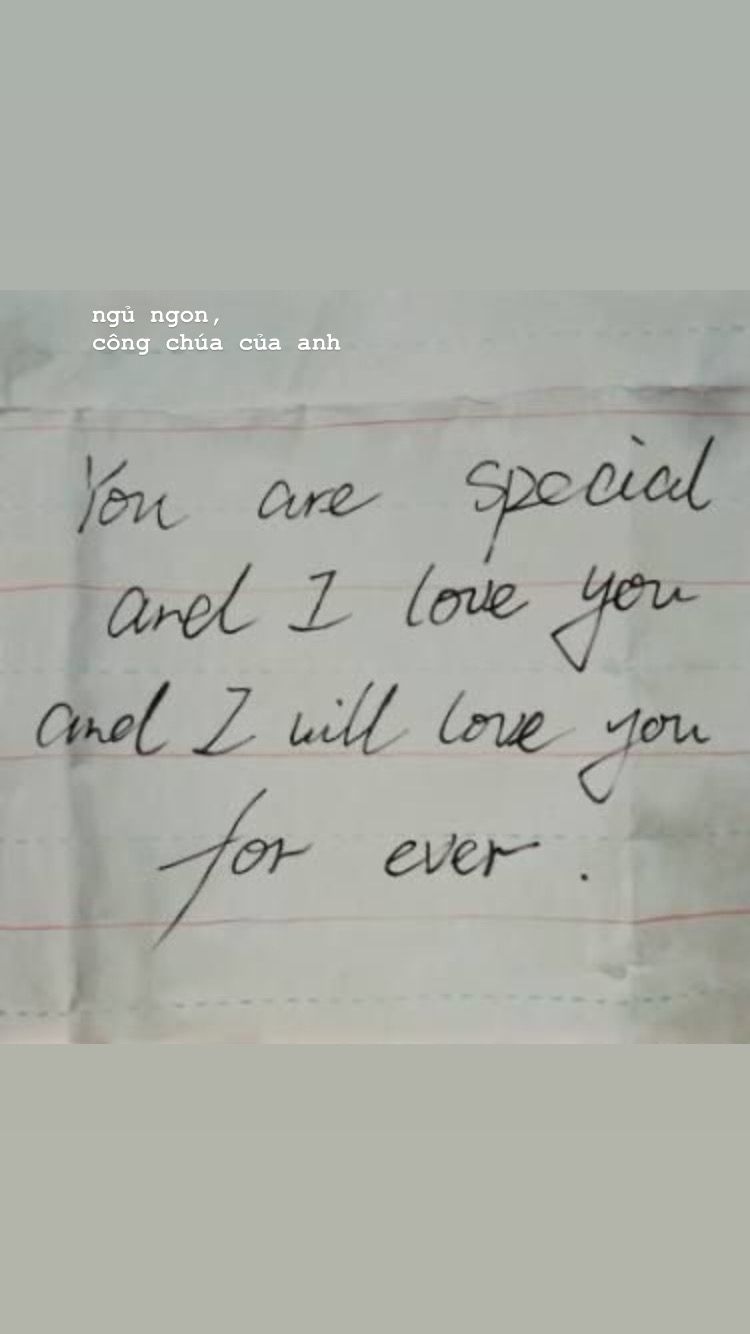 ngủ ngon,
công chúa của anh
You are special
and I love you
and I will love you
for ever.